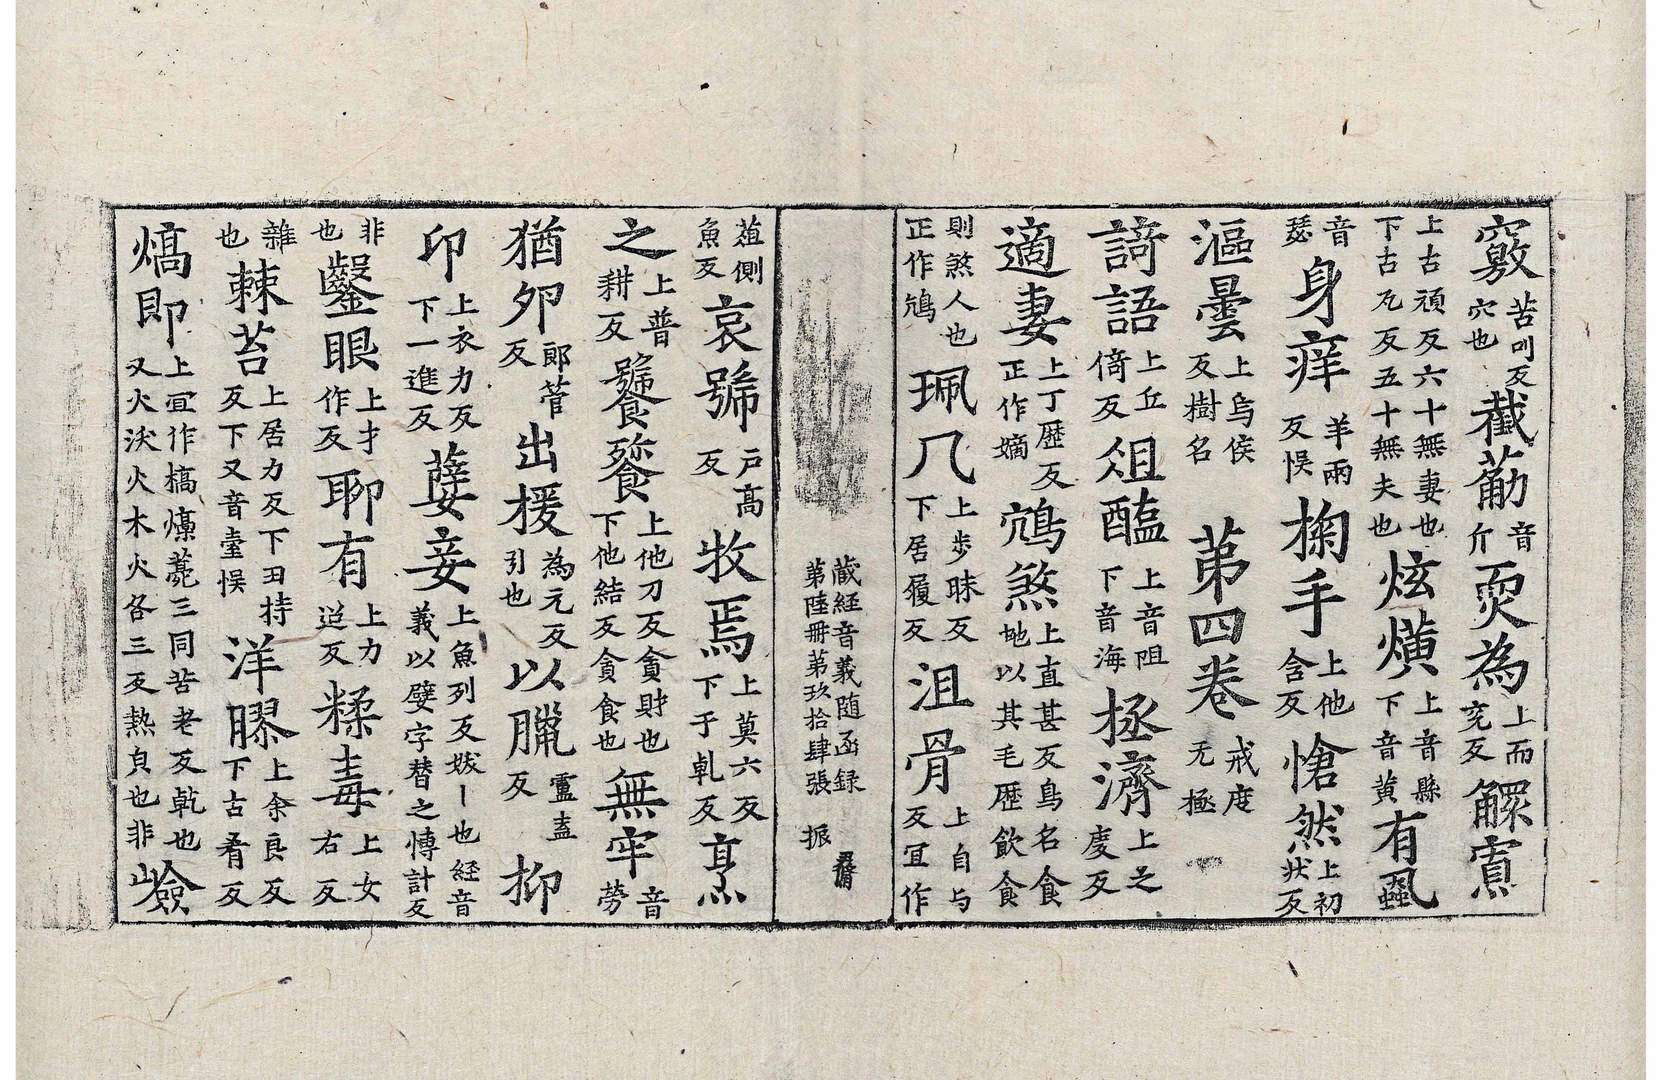 竅苦叫反穴也 截觔音斤 耎為上而兖反 鰥寡
上古頑反六十無妻也下古瓦反五十無夫也 炫熿上音縣下音黄 有䖝
音瑟 身痒羊兩反悮 掬手上他含反 愴然上初状反
漚曇上烏侯反樹名 苐四卷 戒度无極
誇語上丘倚反 俎醢上音阻下音海 拯濟上之䖏反
適妻上丁歷反正作嫡 鴆煞上直甚反鳥名食蛇以其毛歷飲食
則煞人也正作鴆 珮几上步昧反下居履反 沮骨上自与反冝作
藏経音義随函録
苐陸冊苐玖拾肆張 振
葅側魚反 哀號户髙反 牧焉上莫六反下于乹反 烹
之上普耕反 饕餮上他刀反貪財也下他結反貪食也 無牢音勞
猶夘郎菅反 出援為元反引也 以臘盧盍反 抑
印上衣力反下一進反 㜸妾上魚列反妭〡也経音義以孽字替之慱計反
非也 鑿眼上才作反 聊有上力迢反 糅毒上女右反
雜也 棘苔上居力反下丑持反下又音臺悮 洋膠上余良反下古肴反
熇即上冝作槁熇薧三同苦老反乾也又火沃火木火各三反熱皃也非 嶮